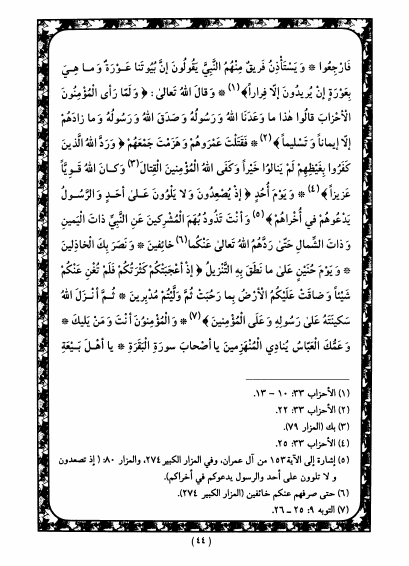 فَارْجِعُوا * وَ يَسْتَأْذِنُ فَرِيقٌ مِنْهُمُ النَّبِيَّ يَقُولُونَ إِنَّ بُيُوتَنا عَوْرَةٌ وَ مـا هِـيَ
بِعَوْرَةٍ إِنْ يُرِيدُونَ إِلَّا فِراراً﴾(١) * وَ قالَ اللهُ تَعالىٰ: ﴿ وَ لَمَّا رَأَى الْمُؤْمِنُونَ
الْأَحْزابَ قالُوا هٰذا ما وَعَدَنَا اللهُ وَ رَسُولُهُ وَ صَدَقَ اللهُ وَ رَسُولُهُ وَ ما زادَهُمْ
إِلَّا إِيماناً وَ تَسْلِيماً ﴾(٢) * فَقَتَلْتَ عَمْرَوهُمْ وَ هَزَمْتَ جَمْعَهُمْ * وَ رَدَّ اللهُ الَّذِينَ
كَفَرُوا بِغَيْظِهِمْ لَمْ يَنالُوا خَيْراً وَ كَفَى اللهُ الْمُؤْمِنِينَ الْقِتالَ(٣) وَ كـانَ اللهُ قَـوِيّاً
عَزِيزاً ﴾(٤) * وَ يَوْمَ أُحُدٍ ﴿ إِذْ يُصْعِدُونَ وَ لا يَلْوُونَ عَـلىٰ أَحَدٍ وَ الرَّسُـولُ
يَدْعُوهُمْ فِي أُخْراهُمْ ﴾(٥) وَ أَنْتَ تَذُودُ بُهَمَ الْمُشْرِكِينَ عَنِ النَّبِيِّ ذاتَ الْيَمِينِ
وَ ذاتَ الشِّمالِ حَتّىٰ رَدَّهُمُ اللهُ تَعالىٰ عَنْكُما(٦) خائِفِينَ * وَ نَصَرَ بِكَ الْخاذِلِينَ
* وَ يَوْمَ حُنَيْنٍ عَلىٰ ما نَطَقَ بِهِ التَّنْزِيلُ ﴿ إِذْ أَعْجَبَتْكُمْ كَثْرَتُكُمْ فَلَمْ تُغْنِ عَنْكُمْ
شَيْئاً وَ ضاقَتْ عَلَيْكُمُ الْأَرْضُ بِما رَحُبَتْ ثُمَّ وَلَّيْتُمْ مُدْبِرِينَ * ثُـمَّ أَنْـزَلَ اللهُ
سَكِينَتَهُ عَلىٰ رَسُولِهِ وَ عَلَى الْمُؤْمِنِينَ ﴾(٧) * وَ الْمُؤْمِنُونَ أَنْتَ وَ مَنْ يَلِيكَ *
وَ عَمُّكَ الْعَبَّاسُ يُنادِي الْمُنْهَزِمِينَ يا أَصْحابَ سُورَةِ الْبَقَرَةِ * يا أَهْـلَ بَـيْعَةِ
(١) الأحزاب ٣٣: ١٠ – ١٣.
(٢) الأحزاب ٣٣: ٢٢.
(٣) بك (المزار ٧٩).
(٤) الأحزاب ٣٣: ٢٥.
(٥) إشارة إلى الآية ١٥٣ من آل عمران، وفي المزار الكبير ٢٧٤، والمزار ٨٠: ( إذ تصعدون
و لا تلوون على أحد والرسول يدعوكم في أخراكم).
(٦) حتى صرفهم عنكم خائفين (المزار الكبير ٢٧٤).
(٧) التوبه ٩: ٢٥ – ٢٦.
(٤٤)